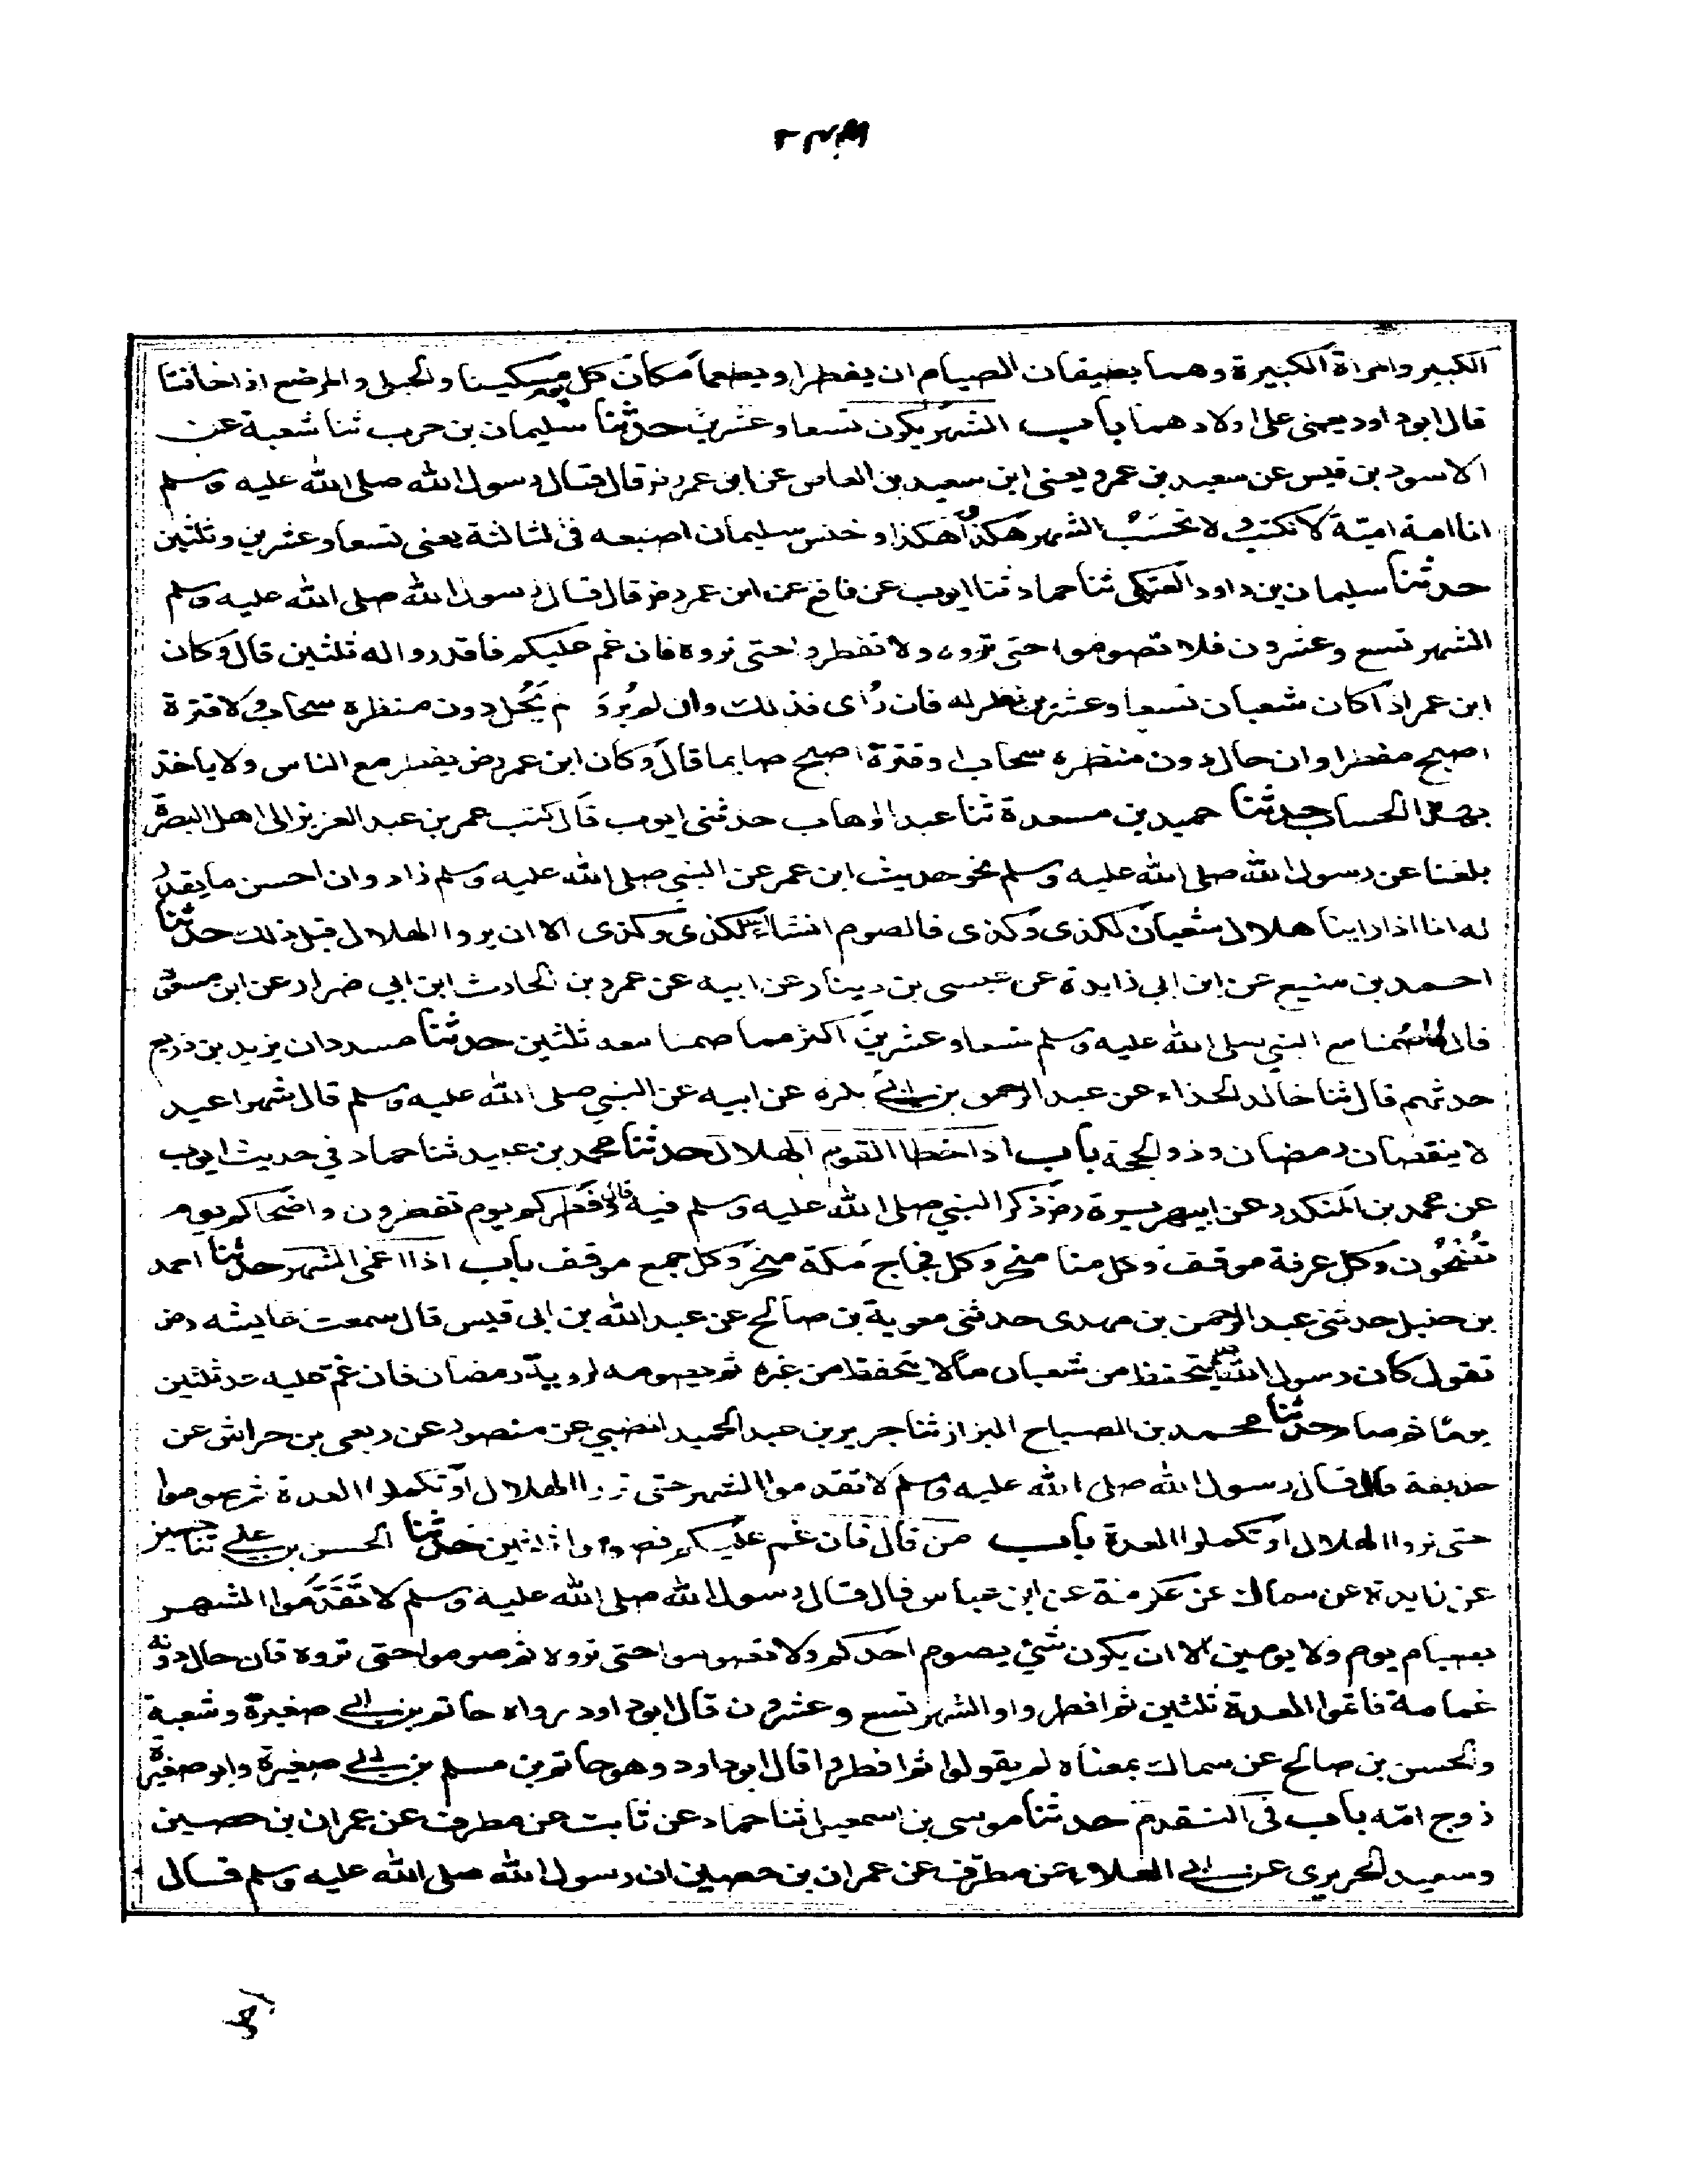 الكبير وامراة الكبيرة وهما يطيقان الصيام ان يفطرا ويطعما مكان كل يوم مسكينا والحبلى والمرضع اذا خافتا
قال ابو داود يعنى على اولادهما باب الشهر يكون تسعا وعشرين حدثنا سليمان بن حرب ثنا شعبة عن
الاسود بن قيس عن سعيد بن عمرو يعنى ابن سعيد بن العاص عن ابن عمر رض قال قال رسول الله صلى الله عليه وسلم
انا امة امية لا نكتب ولا نحسب الشهر هكذا وهكذا وخنس سليمان اصبعه فى الثالثة يعنى تسعا وعشرين وثلثين
حدثنا سليمان بن داود العتكى ثنا حماد ثنا ايوب عن نافع عن ابن عمر رض قال قال رسول الله صلى الله عليه وسلم
الشهر تسع وعشرون فلا تصوموا حتى تروه ولا تفطروا حتى تروه فان غم عليكم فاقدروا له ثلثين قال وكان
ابن عمر اذا كان شعبان تسعا وعشرين نظر له فان رُاى فذلك وان لم يُرَ و م يَحُل دون منظره سحاب ولا قترة
اصبح مفطرا وان حال دون منظره سحاب او قترة اصبح صايما قال وكان ابن عمر رض يفطر مع الناس ولا ياخذ
بهذا الحساب حدثنا حميد بن مسعدة ثنا عبد الوهاب حدثنى ايوب قال كتب عمر بن عبد العزيز الى اهل البصرة
بلغنا عن رسول الله صلى الله عليه وسلم نحو حديث ابن عمر عن النبي صلى الله عليه وسلم زاد وان احسن ما يقدر
له انا اذا راينا هلال شعبان لكذى وكذى فالصوم انشاء الله لكذى وكذى الا ان يروا الهلال قبل ذلك حدثنا
احمد بن منيع عن ابن ابي زايدة عن عيسى بن دينار عن ابيه عن عمرو بن الحارث ابن ابي ضرار عن ابن مسعود
قال لما صمنا مع النبي صلى الله عليه وسلم تسعا وعشرين اكثر مما صمنا معه ثلثين حدثنا مسدد ان يزيد بن زريع
حدثهم قال ثنا خالد الحذاء عن عبد الرحمن بن ابي بكره عن ابيه عن النبي صلى الله عليه وسلم قال شهرا عيد
لا ينقصان رمضان وذو الحجة باب اذا اخطا القوم الهلال حدثنا محمد بن عبيد ثنا حماد في حديث ايوب
عن محمد بن المنكدر عن ابيهريرة رض ذكر النبي صلى الله عليه وسلم فيه قال وفطركم يوم تفطرون واضحاكم يوم
تُضَحُّون وكل عرفة موقف وكل منا منحر وكل فجاج مكة منحر وكل جمع موقف باب اذا اغمى الشهر حدثنا احمد
بن حنبل حدثنى عبد الرحمن بن مهدى حدثنى معوية بن صالح عن عبد الله بن ابى قيس قال سمعت عايشه رض
تقول كان رسول الله صلعم يتحفظ من شعبان مالا يتحفظ من غيره ثم يصومه لروية رمضان فان غم عليه عد ثلثين
يوما ثم صام حدثنا محمد بن الصباح البزاز ثنا جرير بن عبد الحميد الضبي عن منصور عن ربعى بن حراش عن
حذيفة قال قال رسول الله صلى الله عليه وسلم لا تقدموا الشهر حتى تروا الهلال او تكملوا العدة ثم صوموا
حتى تروا الهلال او تكملوا العدة باب من قال فان غم عليكم فصوموا ثلثين حدثنا الحسن بن علي ثنا حسين
عن زايدة عن سماك عن عكرمة عن ابن عباس قال قال رسول الله صلى الله عليه وسلم لا تَقَدَّمَوا الشهر
بصيام يوم ولا يومين الا ان يكون شئ يصوم احدكم ولا تصوموا حتى تروه ثم صوموا حتى تروه فان حال دونه
غمامة فاتموا العدة ثلثين ثم افطروا والشهر تسع وعشرون قال ابو داود رواه حاتم بن ابي صغيرة وشعبة
والحسن بن صالح عن سماك بمعناه لم يقولوا ثم افطروا قال ابو داود وهو حاتم بن مسلم بن ابي صغيرة وابو صغيرة
زوج امه باب فى التقدم حدثنا موسى بن اسمعيل ثنا حماد عن ثابت عن مطرف عن عمران بن حصين
وسعيد الجريرى عن ابي العلاء عن مطرف عن عمران بن حصين ان رسول الله صلى الله عليه وسلم قال